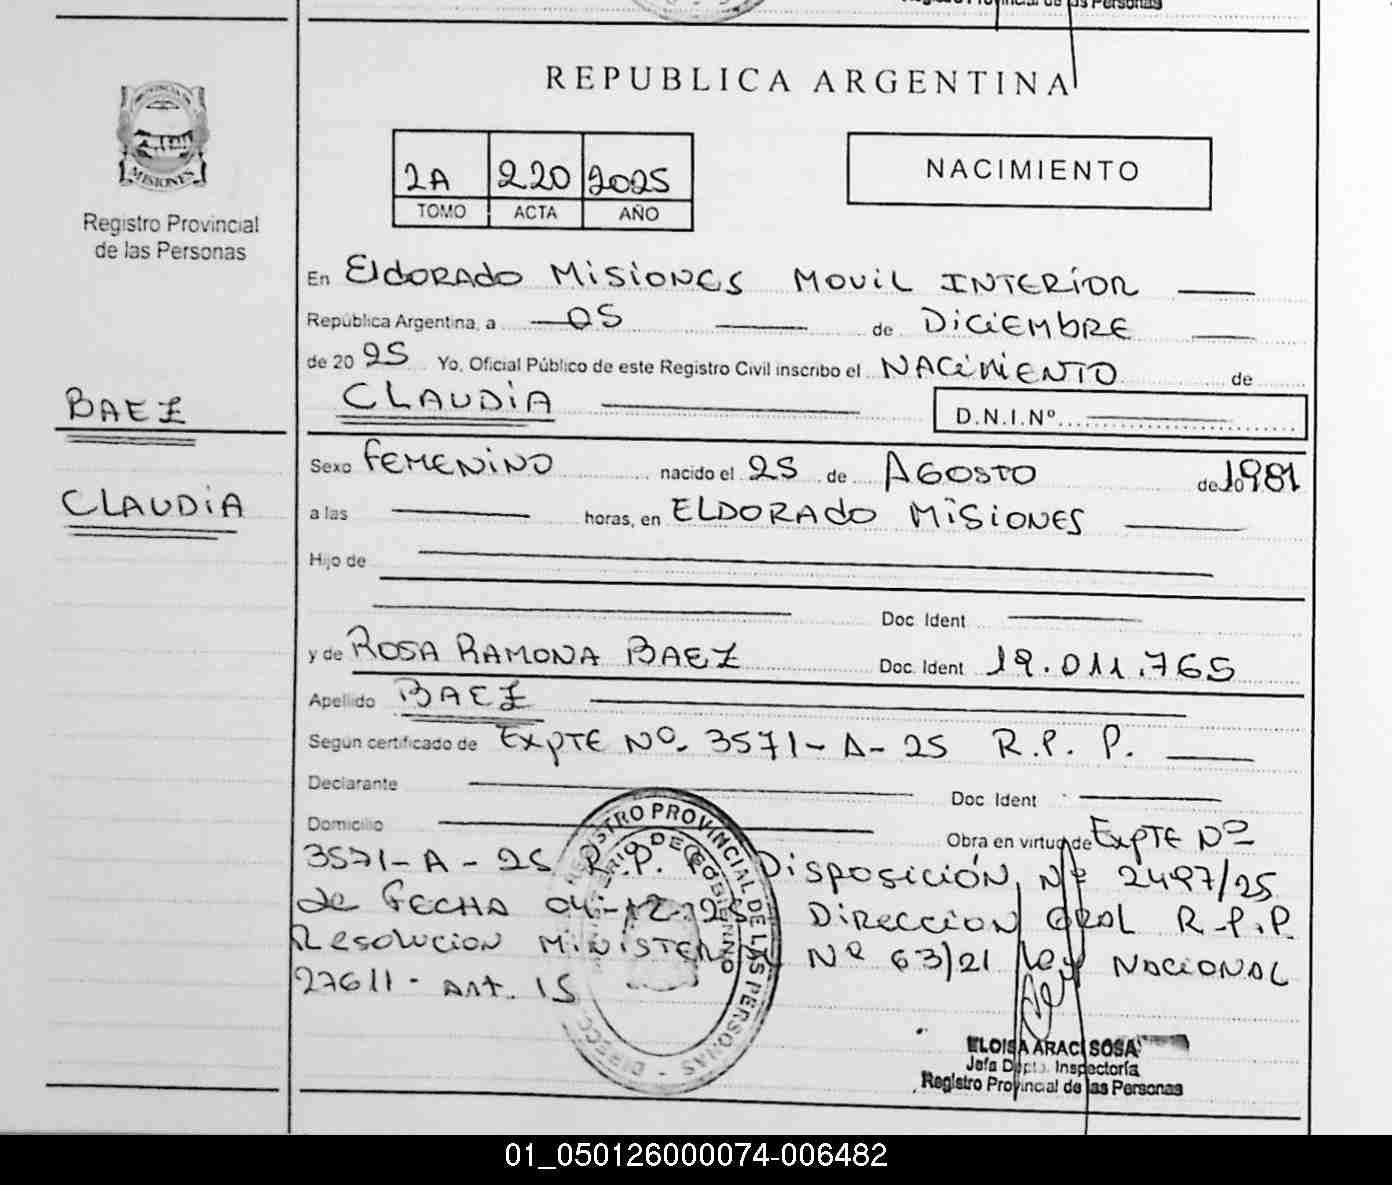 Registro Provincial de las Personas
REPUBLICA ARGENTINA
PROVINCIA DE
MISIONES
Registro Provincial
de las Personas
2A 220 2025
TOMO ACTA AÑO
NACIMIENTO
En ELDORADO MISIONES MOVIL INTERIOR
República Argentina, a 05 de DICIEMBRE
de 20 25 Yo, Oficial Público de este Registro Civil inscribo el NACIMIENTO de
BAEZ
CLAUDIA
D.N.I.Nº
CLAUDIA
Sexo FEMENINO nacido el 25 de AGOSTO de 1981
a las horas, en ELDORADO MISIONES
Hijo de
Doc. Ident
y de ROSA RAMONA BAEZ Doc. Ident 19.011.765
Apellido BAEZ
Segun certificado de EXPTE Nº 3571-A-25 R.P.P.
Declarante Doc. Ident
Domicilio Obra en virtud de EXPTE Nº
3571-A-25 R.P. Disposición Nº 2497/25
de FECHA 04-12-25 DIRECCION GRAL R.P.P.
Resolucion MINISTERIAL Nº 63/21 Ley NACIONAL
27611- Art. 15
REGISTRO PROVINCIAL DE LAS PERSONAS - DIRECC
MINISTERIO DE GOBIERNO
ELOISA ARACI SOSA
Jefa Dpto. Inspectoría
Registro Provincial de las Personas
01_050126000074-006482